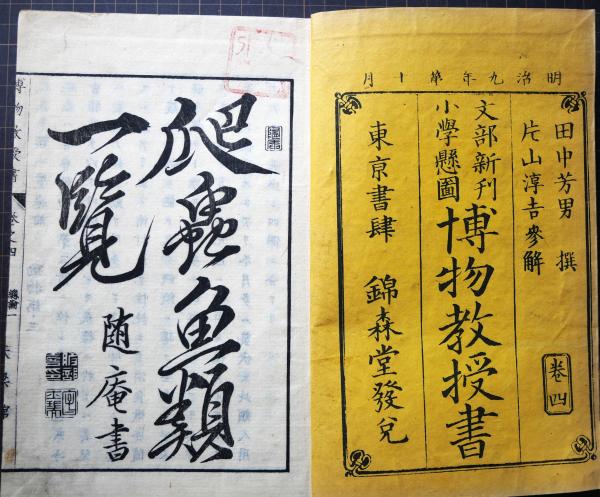 明治九年第十月
田中芳男 撰
片山淳吉参解
文部新刊
小學懸圖
博物教授書
卷四
東京書肆 錦森堂發兌
爬蟲魚類
一覧
随庵書
博物教授書
卷之四
總論